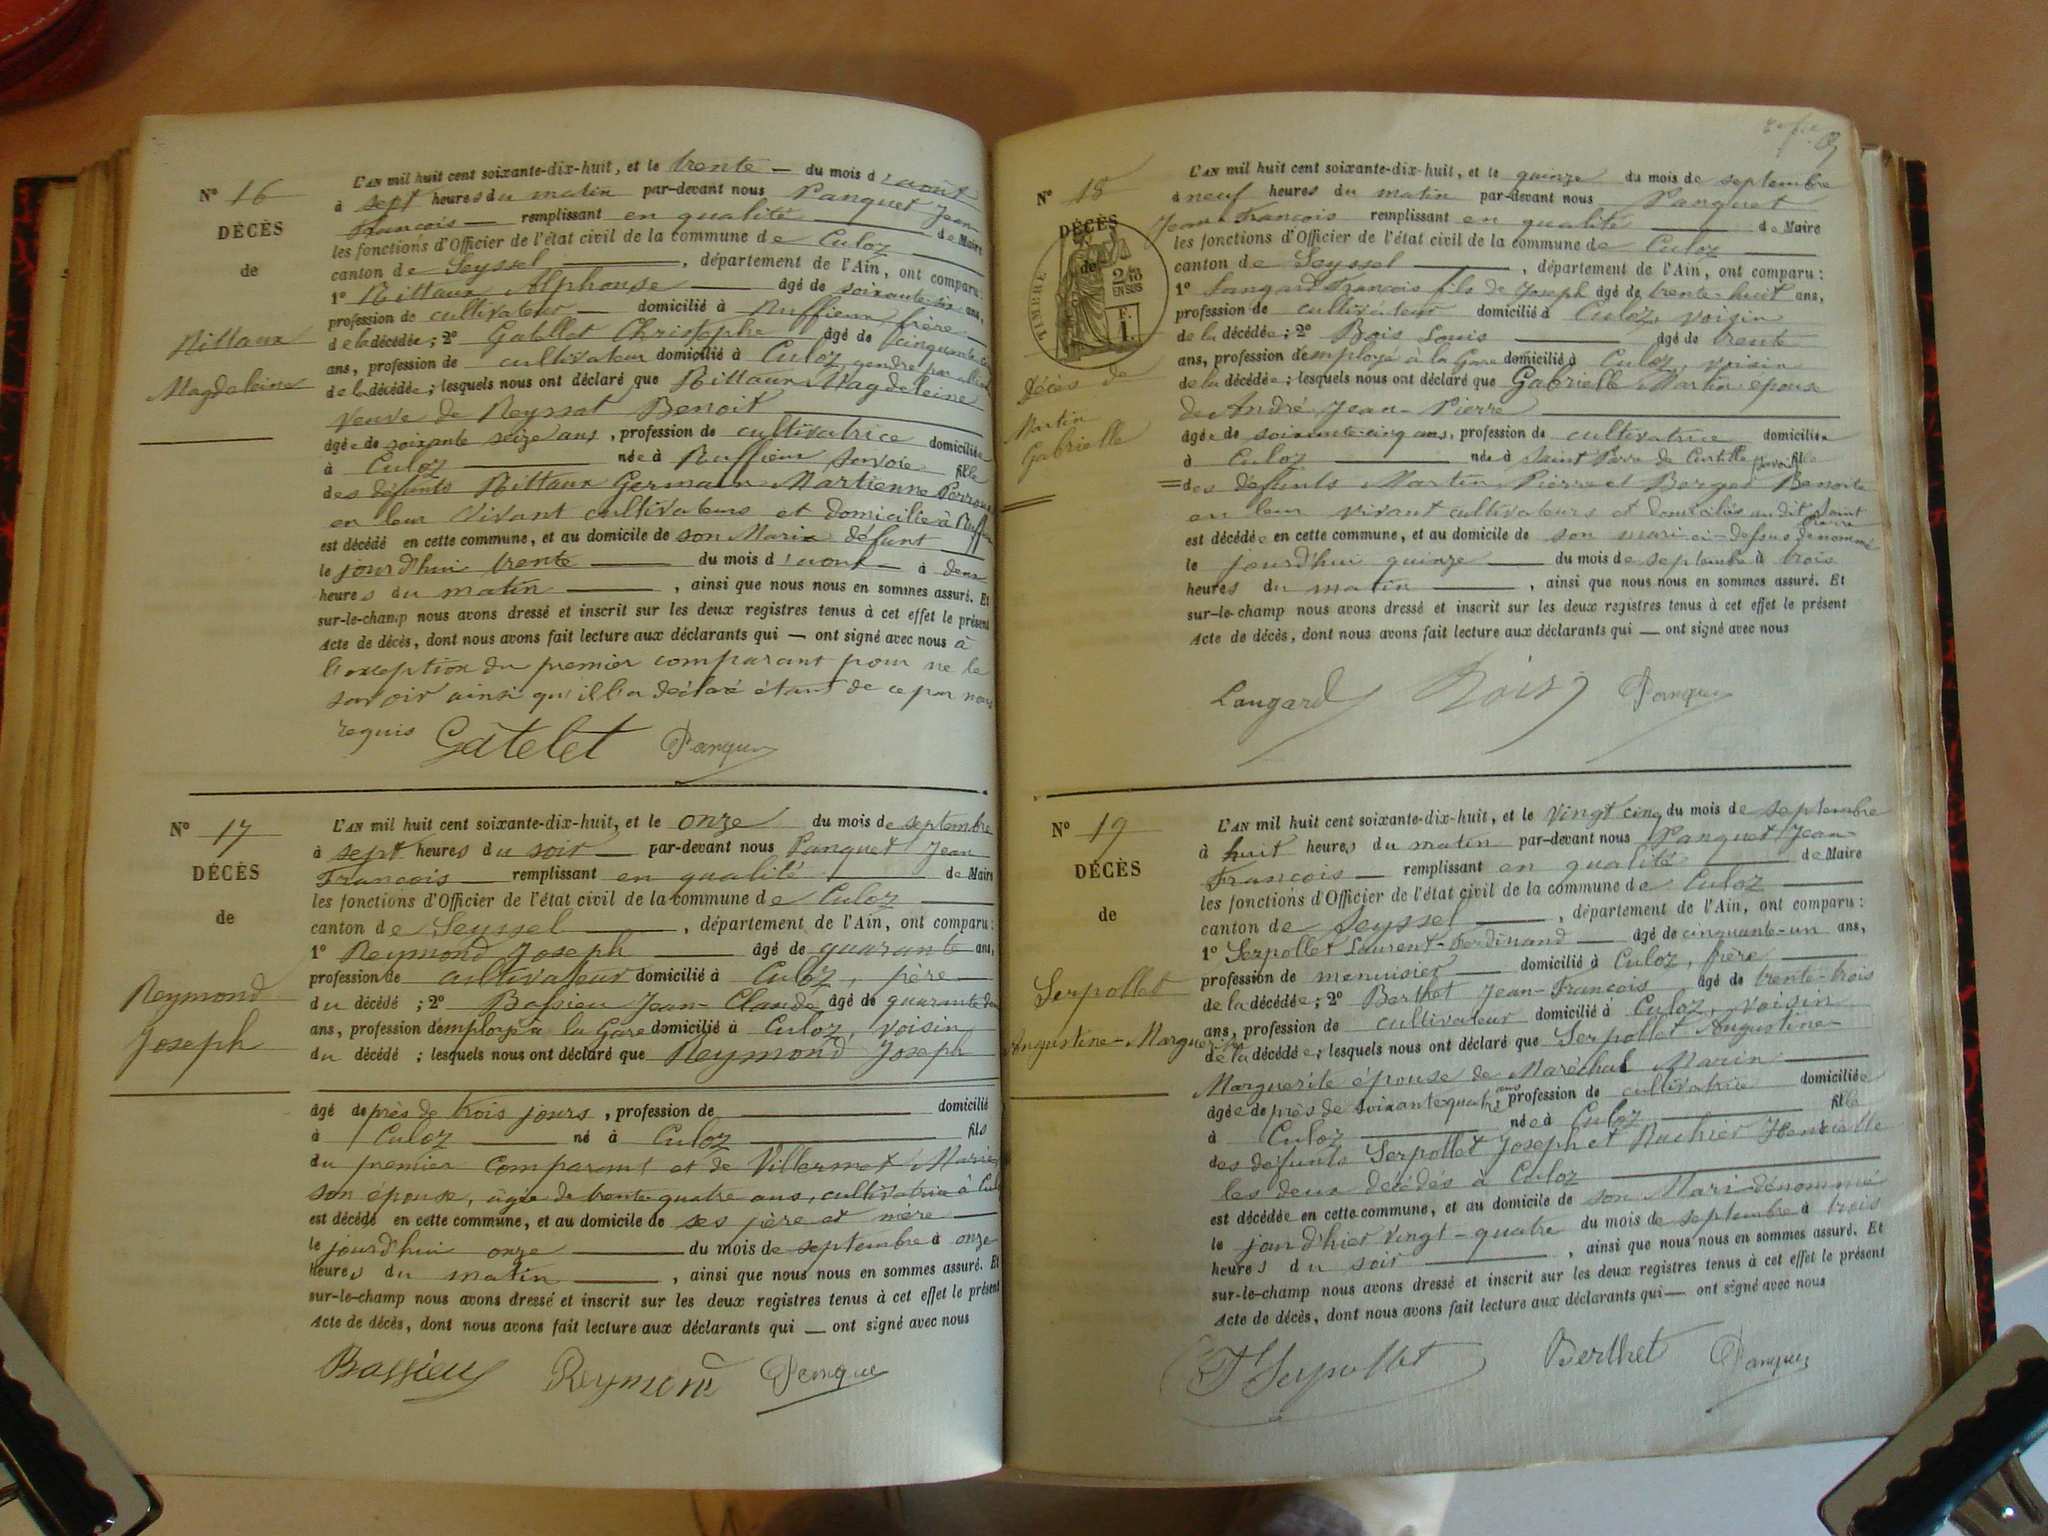 N° 16
DÉCÈS
de
Rittaux
Magdeleine
L'AN mil huit cent soixante-dix-huit, et le trente — du mois d'août
à sept heures du matin par-devant nous Panquet Jean
François — remplissant en qualité — de Maire
les fonctions d'Officier de l'état civil de la commune de Culoz
canton de Seyssel —, département de l'Ain, ont comparu:
1° Rittaux Alphonse — âgé de soixante-six ans,
profession de cultivateur — domicilié à Ruffieux frère —
de la décédée; 2° Gatellet Christophe âgé de cinquante
ans, profession de cultivateur domicilié à Culoz, gendre par alliance
de la décédée; lesquels nous ont déclaré que Rittaux Magdeleine
veuve de Reyssat Benoit —
âgée de soixante seize ans, profession de cultivatrice domiciliée
à Culoz — née à Ruffieux Savoie fille
des défunts Rittaux Germain Martienne
en leur vivant cultivateurs et domiciliés à
est décédé en cette commune, et au domicile de son Mari défunt
le jourd'hui trente — du mois d'août — à deux
heures du matin —, ainsi que nous nous en sommes assuré. Et
sur-le-champ nous avons dressé et inscrit sur les deux registres tenus à cet effet le présent
Acte de décès, dont nous avons fait lecture aux déclarants qui — ont signé avec nous à
l'exception du premier comparant pour ne le
savoir ainsi qu'il l'a déclaré étant de ce par nous
requis Gatelet Panquet
N° 17
DÉCÈS
de
Reymond
Joseph
L'AN mil huit cent soixante-dix-huit, et le onze du mois de septembre
à sept heures du soir — par-devant nous Panquet Jean
François — remplissant en qualité — de Maire
les fonctions d'Officier de l'état civil de la commune de Culoz —
canton de Seyssel —, département de l'Ain, ont comparu:
1° Reymond Joseph — âgé de quarante ans,
profession de cultivateur domicilié à Culoz, père —
du décédé; 2° Bassieu Jean-Claude âgé de quarante deux
ans, profession d'employé à la Gare domicilié à Culoz, voisin
du décédé; lesquels nous ont déclaré que Reymond Joseph
âgé de près de trois jours, profession de — domicilié
à Culoz — né à Culoz — fils
du premier comparant et de Villermet Marie
son épouse, âgée de trente-quatre ans, cultivatrice à
est décédé en cette commune, et au domicile de ses père et mère —
le jourd'hui onze — du mois de septembre à onze
heures du matin —, ainsi que nous nous en sommes assuré. Et
sur-le-champ nous avons dressé et inscrit sur les deux registres tenus à cet effet le présent
Acte de décès, dont nous avons fait lecture aux déclarants qui — ont signé avec nous
Bassieu Reymond Panquet
N° 18
DÉCÈS
de
TIMBRE
2/10 EN SUS
F. 1.
Décès de
Martin
Gabrielle
L'AN mil huit cent soixante-dix-huit, et le quinze du mois de septembre
à neuf heures du matin par-devant nous Panquet
Jean-François remplissant en qualité — de Maire
les fonctions d'Officier de l'état civil de la commune de Culoz —
canton de Seyssel —, département de l'Ain, ont comparu:
1° Langard François fils de Joseph âgé de trente-huit ans,
profession de cultivateur domicilié à Culoz, voisin
de la décédée; 2° Bois Louis — âgé de trente
ans, profession d'employé à la Gare domicilié à Culoz, voisin
de la décédée; lesquels nous ont déclaré que Gabrielle Martin épouse
de André Jean-Pierre —
âgée de soixante-cinq ans, profession de cultivatrice domiciliée
à Culoz — née à Saint Pierre de Curtille (Savoie) fille
des défunts Martin Pierre et Berger Benoite
en leur vivant cultivateurs et domiciliés audit Saint Pierre
est décédée en cette commune, et au domicile de son mari ci-dessus dénommé
le jourd'hui quinze — du mois de septembre à trois
heures du matin —, ainsi que nous nous en sommes assuré. Et
sur-le-champ nous avons dressé et inscrit sur les deux registres tenus à cet effet le présent
Acte de décès, dont nous avons fait lecture aux déclarants qui — ont signé avec nous
Langard Bois Panquet
N° 19
DÉCÈS
de
Serpollet
Augustine-Marguerite
L'AN mil huit cent soixante-dix-huit, et le vingt cinq du mois de septembre
à huit heures du matin par-devant nous Panquet Jean-
François — remplissant en qualité — de Maire
les fonctions d'Officier de l'état civil de la commune de Culoz —
canton de Seyssel —, département de l'Ain, ont comparu:
1° Serpollet Laurent-Ferdinand — âgé de cinquante-un ans,
profession de menuisier — domicilié à Culoz, frère —
de la décédée; 2° Berthet Jean-François âgé de trente-trois
ans, profession de cultivateur domicilié à Culoz, voisin
de la décédée; lesquels nous ont déclaré que Serpollet Augustine
Marguerite épouse de Maréchal Marin —
âgée de près de soixante quatre ans profession de cultivatrice domiciliée
à Culoz — née à Culoz — fille
des défunts Serpollet Joseph et Ruchier Henriette
les deux décédés à Culoz —
est décédée en cette commune, et au domicile de son Mari dénommé
le jour d'hier vingt-quatre du mois de septembre à trois
heures du soir —, ainsi que nous nous en sommes assuré. Et
sur-le-champ nous avons dressé et inscrit sur les deux registres tenus à cet effet le présent
Acte de décès, dont nous avons fait lecture aux déclarants qui — ont signé avec nous
F Serpollet Berthet Panquet